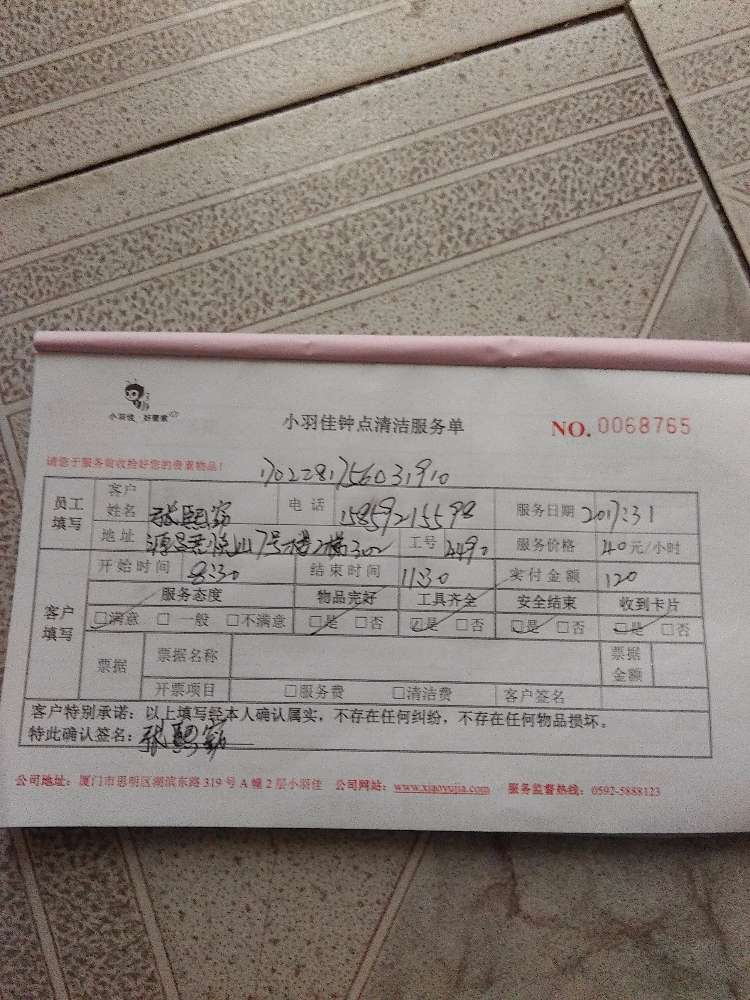 小羽佳 好管家
小羽佳钟点清洁服务单 NO. 0068765
请您于服务前收拾好您的贵重物品! 1702281756031910
员工填写 客户姓名 张熙 电话 15859215598 服务日期 2017.3.1
地址 7号楼2梯302 工号 2490 服务价格 40元/小时
开始时间 8:30 结束时间 11:30 实付金额 120
客户填写 服务态度 物品完好 工具齐全 安全结束 收到卡片
☑满意 □一般 □不满意 ☑是 □否 ☑是 □否 ☑是 □否 ☑是 □否
票据 票据名称 票据金额
开票项目 □服务费 □清洁费 客户签名
客户特别承诺：以上填写经本人确认属实，不存在任何纠纷，不存在任何物品损坏。
特此确认签名：张熙
公司地址：厦门市思明区湖滨东路319号A幢2层小羽佳 公司网站：www.xiaoyujia.com 服务监督热线：0592-5888123